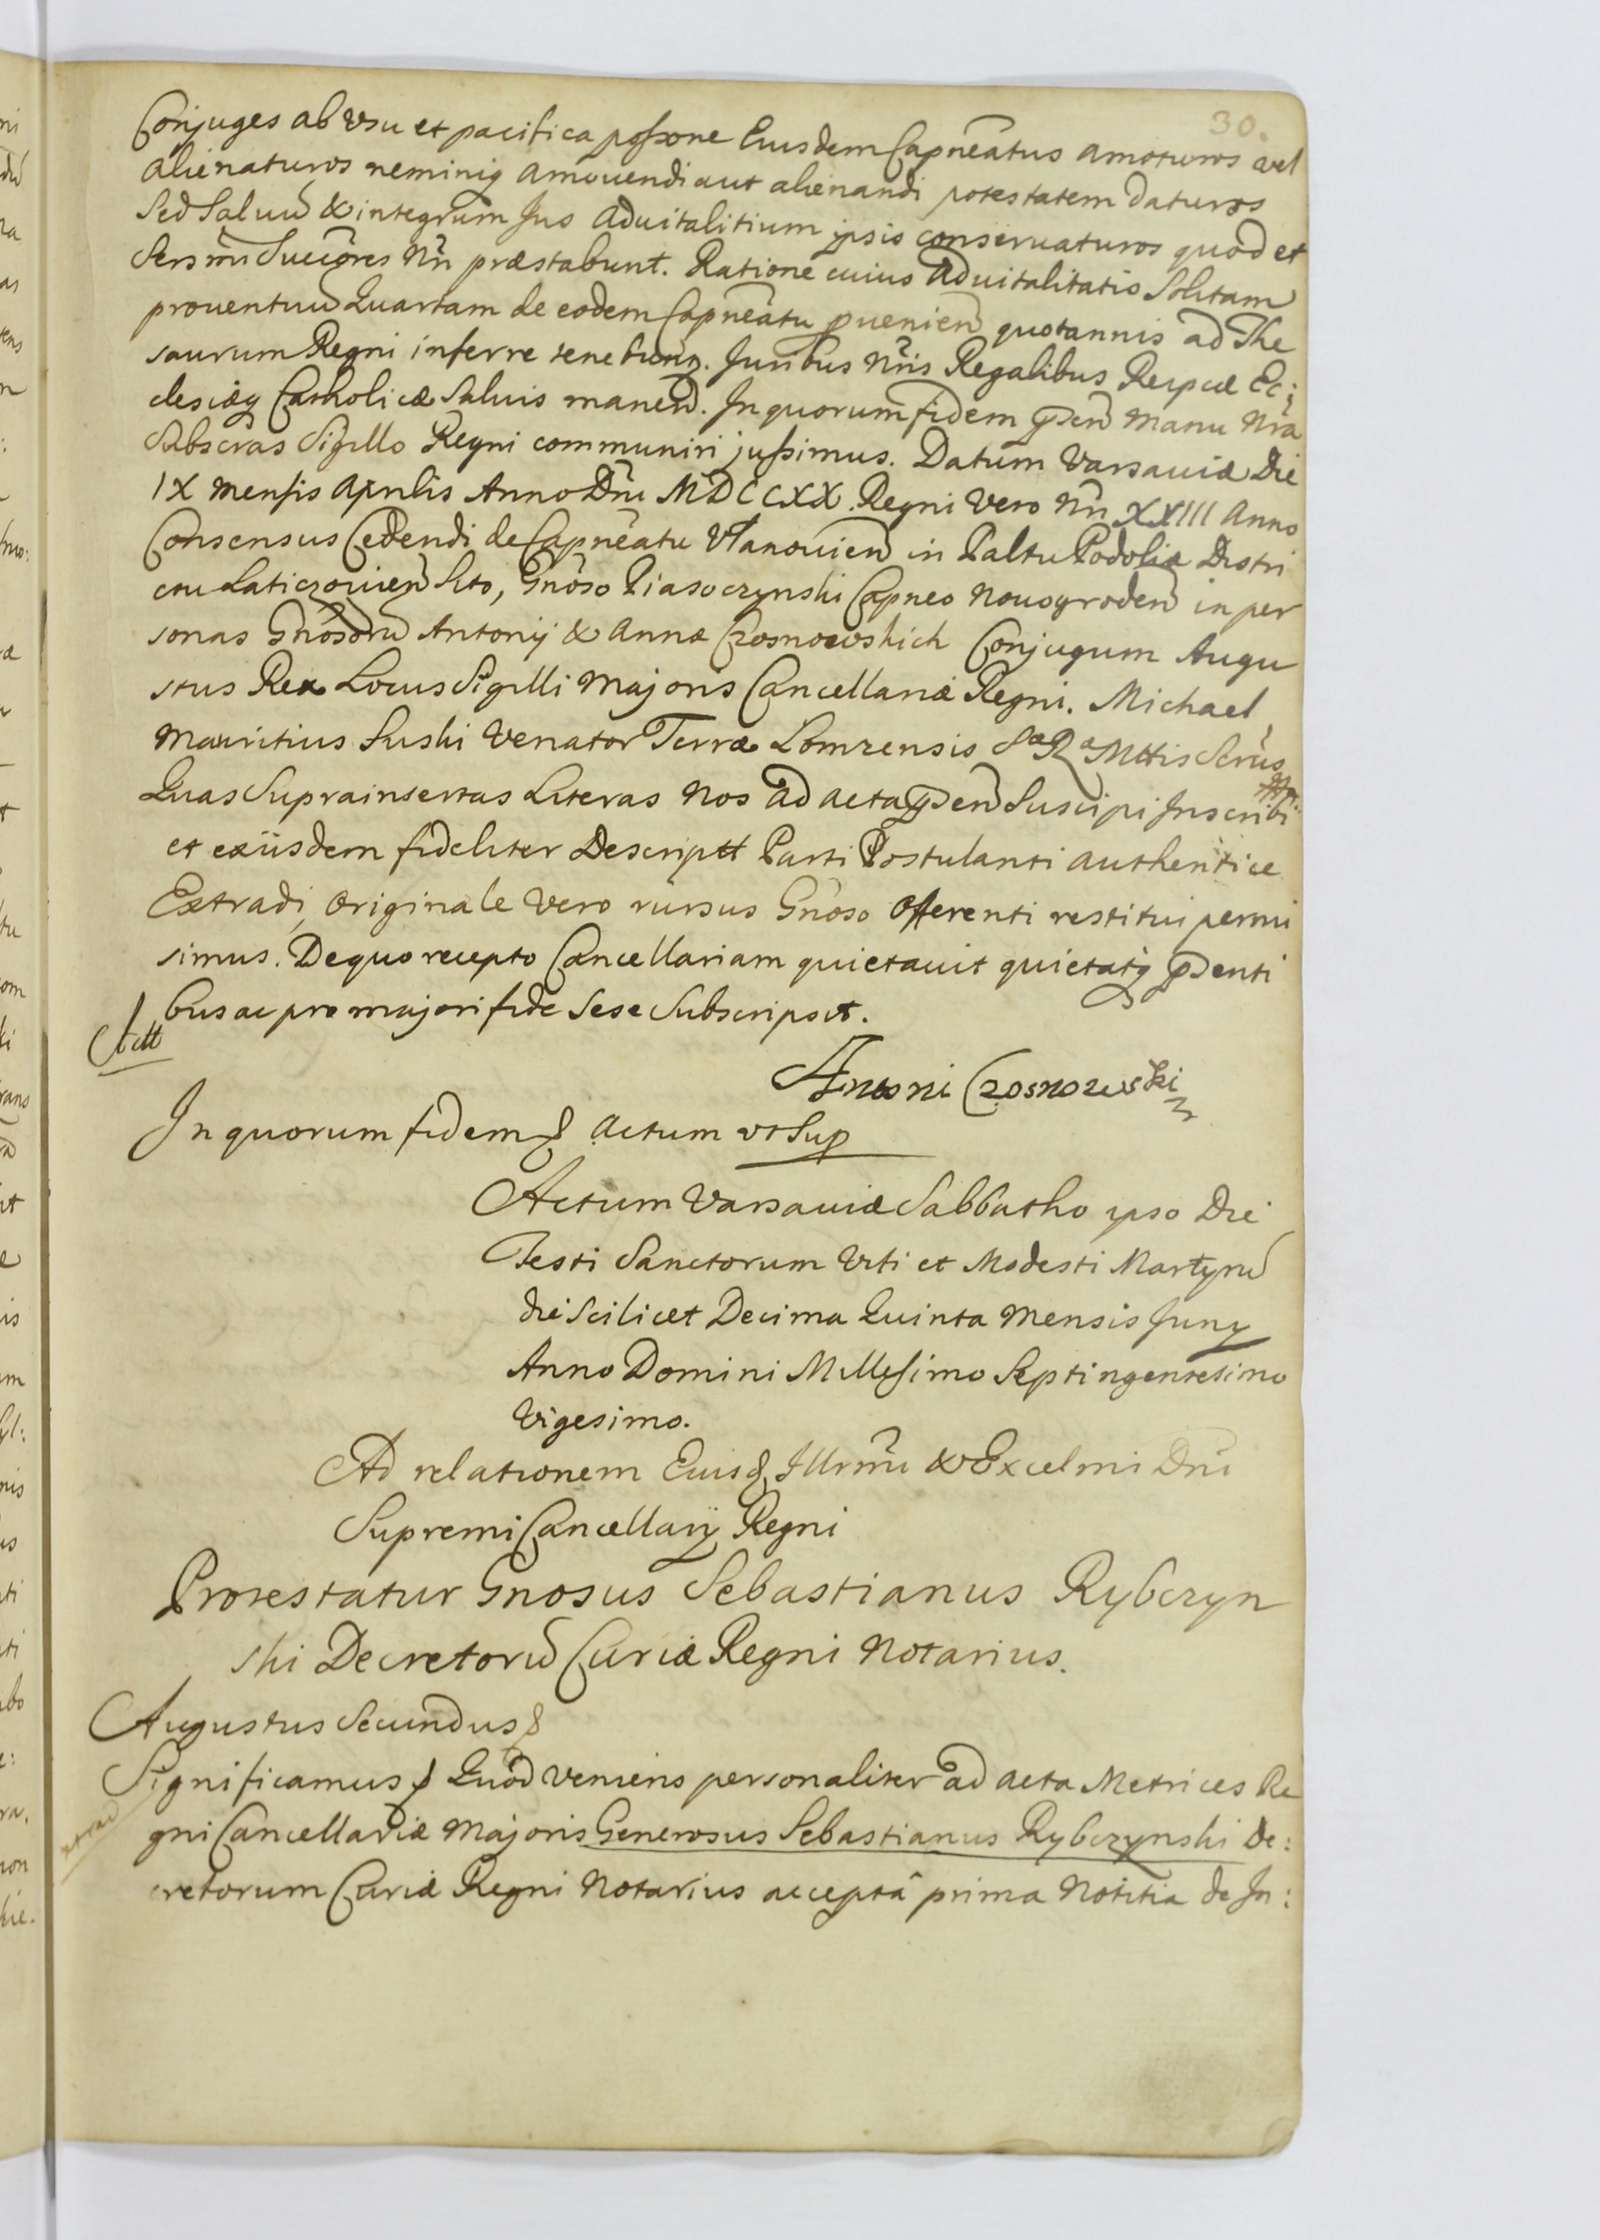 30.
Conjuges ab usu et pacifica possone Eiusdem Capneatus amoturos vel
alienaturos neminiq amouendi aut alienandi potestatem daturos
Sed Saluu & integrum Jus aduitalitium ipsis conseruaturos quod et
Sersmi Succores Nri præstabunt. Ratione cuius aduitalitatis Solitam
prouentuu Quartam de eodem Capneatu puenien quotannis ad The
saurum Regni inferre tenebunt. Juribus Nris Regalibus Reipcæ Ec:
clesiæq Catholicæ Saluis manen. In quorum fidem psen manu Nra
Subscras Sigillo Regni communiri jussimus. Datum Varsauiæ Die
IX mensis Aprilis Anno Dni MDCCXX. Regni Vero Nri XXIII Anno
Consensus Cedendi de Capneatu Ułanouien in Paltu Podoliæ Distri
ctu Laticzouien Sito, Gnoso Piasoczynski Capneo Nouogroden in per
sonas Gnosoru Antonij & Annæ Czosnowskich Conjugum Augu
stus Rex Locus Sigilli Majoris Cancellariæ Regni. Michael
Mauritius Suski Venator Terræ Lomzensis Sæ Ræ Mttis Scrius
Quas Suprainsertas Literas Nos ad acta psen Suscipi Inscribi
et exiisdem fideliter Descriptt Parti Postulanti authentice
Extradi, Originale Vero rursus Gnoso Offerenti restitui permi
simus. De quo recepto Cancellariam quietauit quietatq psenti
bus ac pro majori fide Sese Subscripsit.
Antoni Czosnowski
In quorum fidem & Actum vt Sup
Actum Varsauiæ Sabbatho ipso Die
Festi Sanctorum Viti et Modesti Martyru
die Scilicet Decima Quinta Mensis Juny
Anno Domini Millesimo Septingentesimo
Vigesimo.
Ad relationem Eiusd Illrmi & Excelmi Dni
Supremi Cancellarij Regni
Protestatur Gnosus Sebastianus Rybczyn
ski Decretoru Curiæ Regni Notarius.
Augustus Secundus &
Significamus & Quod veniens personaliter ad acta Metrices Re
gni Cancellariæ Majoris Generosus Sebastianus Rybczynski De:
cretorum Curiæ Regni Notarius acceptâ prima Notitia de In: